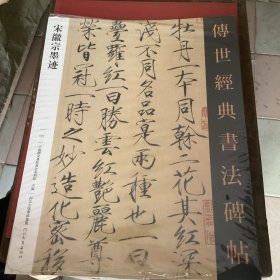 傳世經典書法碑帖
宋徽宗墨迹
牡丹一本同幹二花其紅深
淺不同名品實兩種也一曰
疊羅紅一曰勝雲紅艷麗尊
榮皆冠一時之妙造化密移